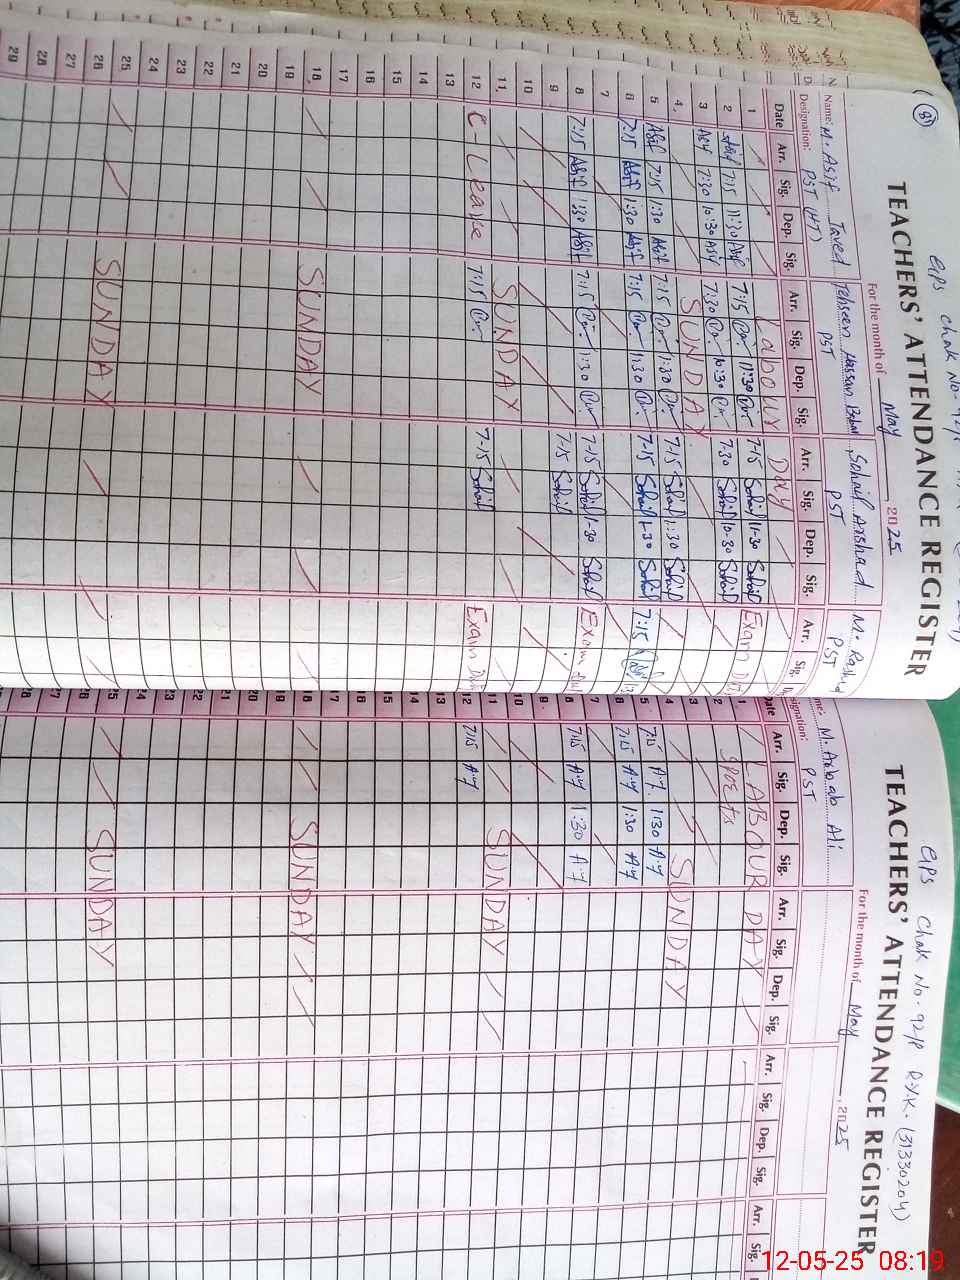 GPS Chak No. 92/P
TEACHERS' ATTENDANCE REGISTER
For the month of May, 2025
Name: M. Asif Javed
Tehseen Hassan
Sohail Arshad
M. Rashid
Designation: PST (HT)
PST
PST
PST
Date Arr. Sig. Dep. Sig. Arr. Sig. Dep. Sig. Arr. Sig. Dep. Sig. Arr. Sig.
1 Labour Day
2 Asif 7:15 11:30 Asif 7:15 11:30 7-15 Sohail 11-30 Sohail Exam
3 Asif 7:30 10:30 Asif 7:30 10:30 7-30 Sohail 10-30 Sohail
4 SUNDAY
5 Asif 7:15 1:30 Asif 7:15 1:30 7-15 Sohail 1:30 Sohail
6 7:15 Asif 1:30 Asif 7:15 1:30 7-15 Sohail 1-30 Sohail 7:15
7
8 7:15 Asif 1:30 Asif 7:15 1:30 7-15 Sohail 1-30 Sohail Exam
9 7-15 Sohail
10
11 SUNDAY
12 C-Leave 7:15 7-15 Sohail Exam
13
14
15
16
17
18 SUNDAY
19
20
21
22
23
24
25
26 SUNDAY
27
28
29
GPS Chak No. 92/P R.Y.K. (31330204)
TEACHERS' ATTENDANCE REGISTER
For the month of May, 2025
M. Arbab Ali
PST
Date Arr. Sig. Dep. Sig. Arr. Sig. Dep. Sig. Arr. Sig. Dep. Sig. Arr. Sig.
1 LABOUR DAY
2 Sports
3
4 SUNDAY
5 7:15 A.y 1:30 A.y
6 7:15 A.y 1:30 A.y
7
8 7:15 A.y 1:30 A.y
9
10
11 SUNDAY
12 7:15 A.y
13
14
15
16
17
18 SUNDAY
19
20
21
22
23
24
25
26 SUNDAY
27
28
12-05-25 08:19